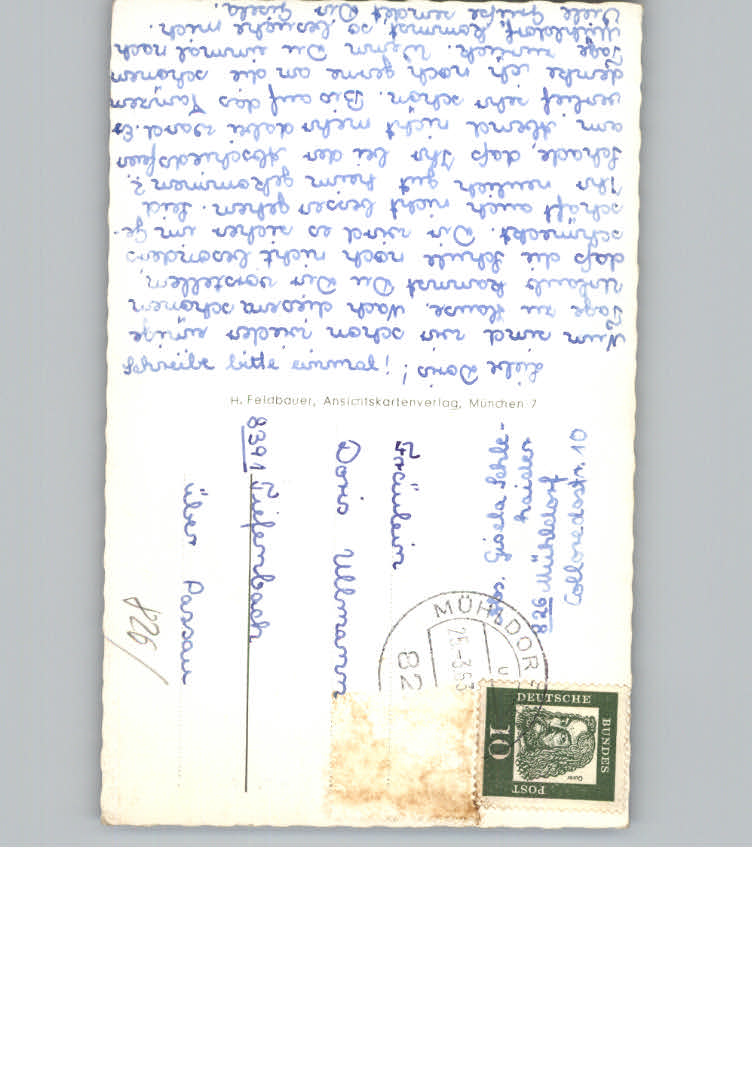 Liebe Doris!
Schreibe bitte einmal!
Nun sind wir schon wieder einige
Tage zu Hause. Nach diesem schönen
Urlaub kannst Du Dir vorstellen,
daß die Schule noch nicht besonders
schmeckt. Dir wird es sicher im Ge-
schäft auch nicht besser gehen. Seid
Ihr neulich gut heim gekommen?
Schade, daß Ihr bei der Abschiedsfeier
am Abend nicht mehr dabei ward. Es
verlief sehr schön. Bis auf das Tanzen
denke ich noch gerne an die schönen
Tage zurück. Wenn Du einmal nach
Mühldorf kommst, so besuche mich.
Viele Grüße sendet Dir Gisela.
H. Feldbauer, Ansichtskartenverlag, München 7
Abs. Gisela
826 Mühldorf
Colloredostr. 10
Fräulein
Doris Ullmann
8391 Tiefenbach
über Passau
826
MÜHLDORF
25.-3.63
82
DEUTSCHE
BUNDES
POST
10
Dürer